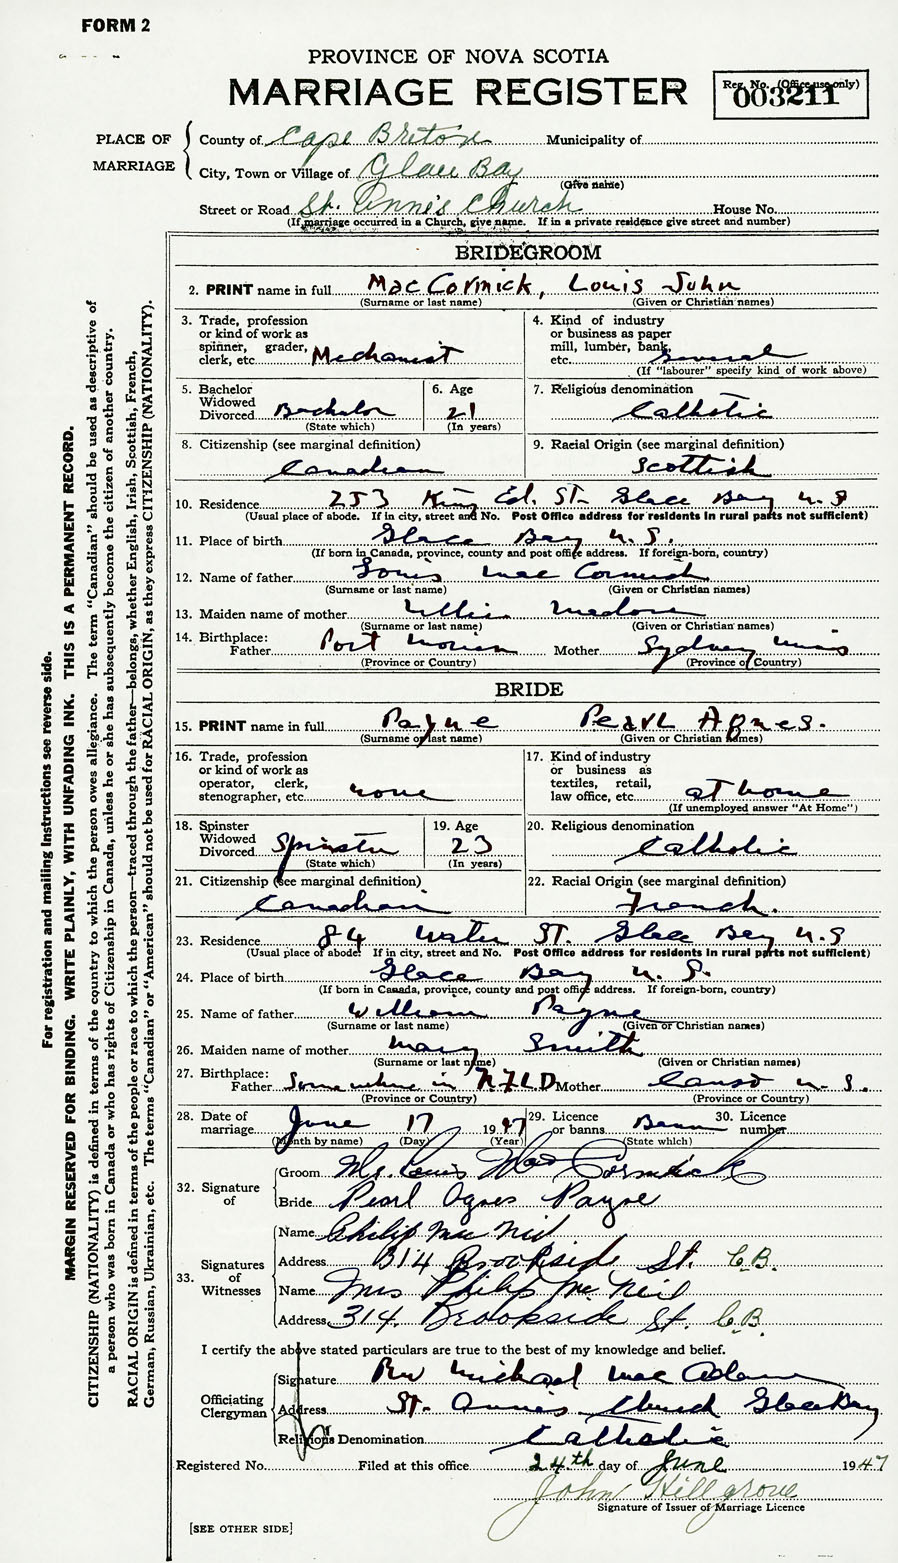 FORM 2
PROVINCE OF NOVA SCOTIA
MARRIAGE REGISTER
Reg. No. (Office use only)
003211
PLACE OF MARRIAGE
County of Cape Breton Municipality of
City, Town or Village of Glace Bay
(Give name)
Street or Road St. Anne's Church House No.
(If marriage occurred in a Church, give name. If in a private residence give street and number)
BRIDEGROOM
2. PRINT name in full MacCormick, Louis John
(Surname or last name) (Given or Christian names)
3. Trade, profession or kind of work as spinner, grader, clerk, etc. Mechanist
4. Kind of industry or business as paper mill, lumber, bank, etc. General
(If "labourer" specify kind of work above)
5. Bachelor Widowed Divorced Bachelor
(State which)
6. Age 21
(In years)
7. Religious denomination Catholic
8. Citizenship (see marginal definition) Canadian
9. Racial Origin (see marginal definition) Scottish
10. Residence 253 King Ed. St. Glace Bay N.S
(Usual place of abode. If in city, street and No. Post Office address for residents in rural parts not sufficient)
11. Place of birth Glace Bay N.S.
(If born in Canada, province, county and post office address. If foreign-born, country)
12. Name of father Louis Mac Cormick
(Surname or last name) (Given or Christian names)
13. Maiden name of mother
(Surname or last name) (Given or Christian names)
14. Birthplace: Father Port Morien Mother Sydney Mines
(Province or Country) (Province or Country)
BRIDE
15. PRINT name in full Payne Pearl Agnes.
(Surname or last name) (Given or Christian names)
16. Trade, profession or kind of work as operator, clerk, stenographer, etc. none
17. Kind of industry or business as textiles, retail, law office, etc. at home
(If unemployed answer "At Home")
18. Spinster Widowed Divorced Spinster
(State which)
19. Age 23
(In years)
20. Religious denomination Catholic
21. Citizenship (see marginal definition) Canadian
22. Racial Origin (see marginal definition) French.
23. Residence 84 Water St. Glace Bay N.S
(Usual place of abode. If in city, street and No. Post Office address for residents in rural parts not sufficient)
24. Place of birth Glace Bay N.S.
(If born in Canada, province, county and post office address. If foreign-born, country)
25. Name of father William Payne
(Surname or last name) (Given or Christian names)
26. Maiden name of mother Mary Smith
(Surname or last name) (Given or Christian names)
27. Birthplace: Father Somewhere in NFLD Mother Canso N.S.
(Province or Country) (Province or Country)
28. Date of marriage June 17 1947
(Month by name) (Day) (Year)
29. Licence or banns Bann
(State which)
30. Licence number
32. Signature of
Groom Mr. Louis Mac Cormick
Bride Pearl Agnes Payne
33. Signatures of Witnesses
Name Philip Mac Neil
Address 314 Brookside St. C.B.
Name Mrs Philip Mc Neil
Address 314 Brookside St. C.B.
I certify the above stated particulars are true to the best of my knowledge and belief.
Officiating Clergyman
Signature Rev Michael Mac Adam
Address St. Anne's Church Glace Bay
Religious Denomination Catholic
Registered No. Filed at this office 24th day of June 1947
John Hillgrove
Signature of Issuer of Marriage Licence
[SEE OTHER SIDE]
For registration and mailing instructions see reverse side.
MARGIN RESERVED FOR BINDING. WRITE PLAINLY, WITH UNFADING INK. THIS IS A PERMANENT RECORD.
CITIZENSHIP (NATIONALITY) is defined in terms of the country to which the person owes allegiance. The term "Canadian" should be used as descriptive of
a person who was born in Canada or who has rights of Citizenship in Canada, unless he or she has subsequently become the citizen of another country.
RACIAL ORIGIN is defined in terms of the people or race to which the person—traced through the father—belongs, whether English, Irish, Scottish, French,
German, Russian, Ukrainian, etc. The terms "Canadian" or "American" should not be used for RACIAL ORIGIN, as they express CITIZENSHIP (NATIONALITY).